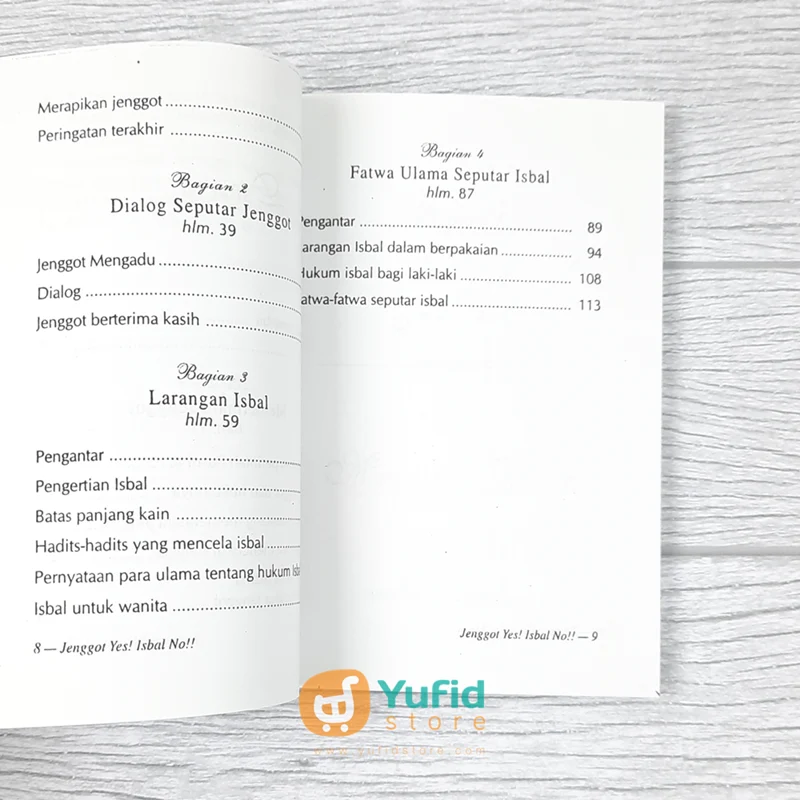 Merapikan jenggot
Peringatan terakhir
Bagian 2
Dialog Seputar Jenggot
hlm. 39
Jenggot Mengadu
Dialog
Jenggot berterima kasih
Bagian 3
Larangan Isbal
hlm. 59
Pengantar
Pengertian Isbal
Batas panjang kain
Hadits-hadits yang mencela isbal
Pernyataan para ulama tentang hukum
Isbal untuk wanita
8 — Jenggot Yes! Isbal No!!
Bagian 4
Fatwa Ulama Seputar Isbal
hlm. 87
Pengantar 89
Larangan Isbal dalam berpakaian 94
Hukum isbal bagi laki-laki 108
Fatwa-fatwa seputar isbal 113
Jenggot Yes! Isbal No!! — 9
Yufid
store
www.yufidstore.com